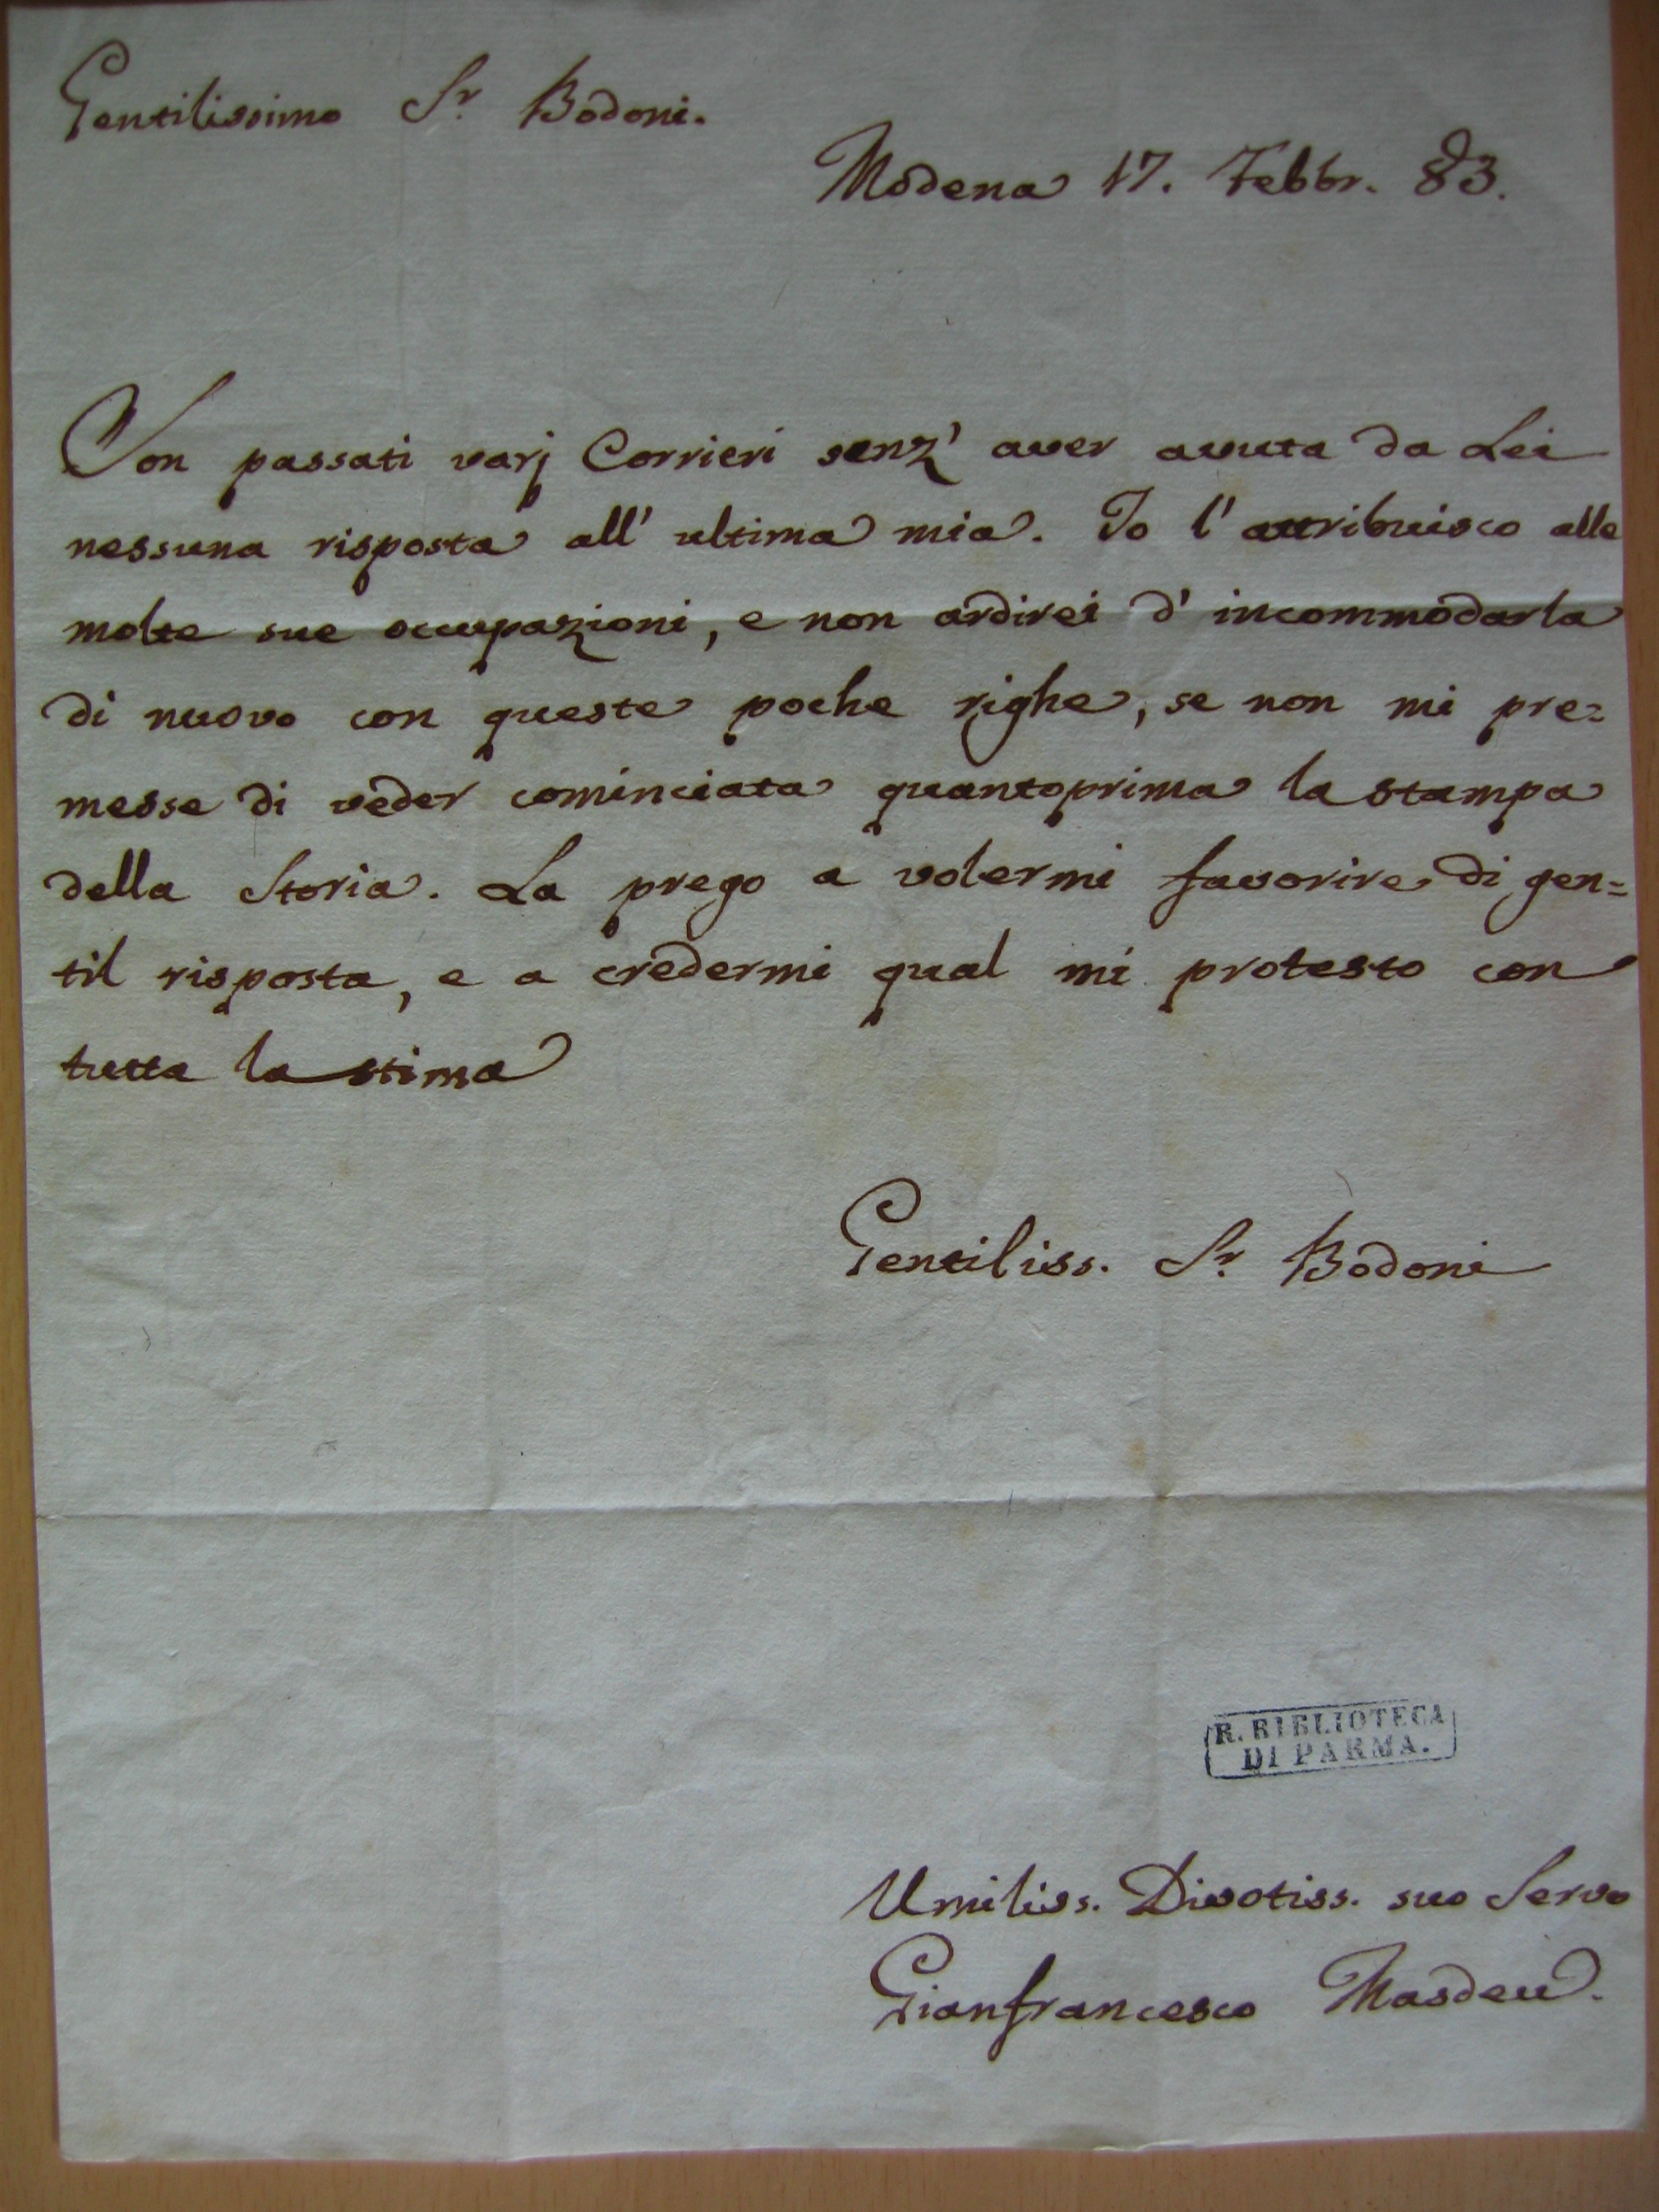 Gentilissimo Sr. Bodoni.
Modena 17. Febbr. 83.
Son passati varj Corrieri senz' aver avuta da Lei
nessuna risposta all' ultima mia. Io l' attribuisco alle
molte sue occupazioni, e non ardirei d' incommodarla
di nuovo con queste poche righe, se non mi pre=
messe di veder cominciata quantoprima la stampa
della Storia. La prego a volermi favorire di gen=
til risposta, e a credermi qual mi protesto con
tutta la stima
Gentiliss. Sr. Bodoni
R. BIBLIOTECA
DI PARMA.
Umiliss. Divotiss. suo Servo
Gianfrancesco Masdeu.